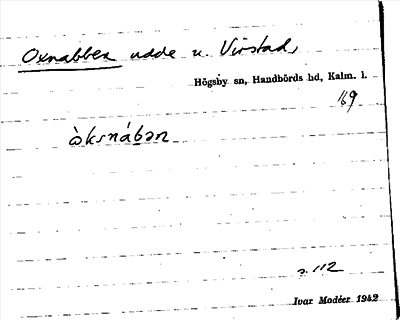 Oxnabben udde u. Virstad,
Högsby sn, Handbörds hd, Kalm. l.
169
òksnábən
s. 112
Ivar Modéer 1942